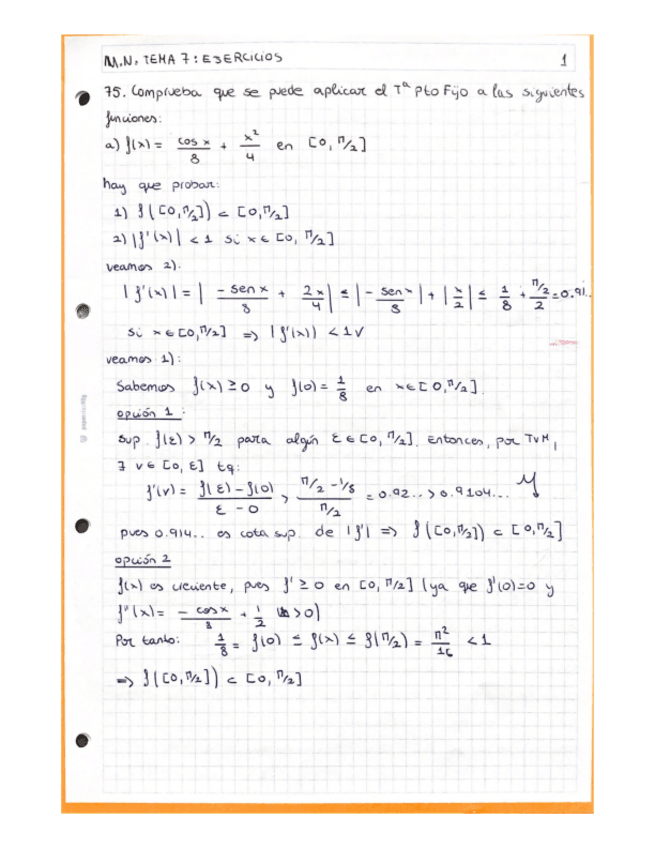 M.N. TEMA 7: EJERCICIOS 1
75. Comprueba que se puede aplicar el Tª Pto Fijo a las siguientes
funciones:
a) f(x) = cos x / 8 + x² / 4 en [0, π/2]
hay que probar:
1) f([0, π/2]) ⊂ [0, π/2]
2) |f'(x)| < 1 si x ∈ [0, π/2]
veamos 2).
|f'(x)| = | -sen x / 8 + 2x / 4 | ≤ | -sen x / 8 | + | x / 2 | ≤ 1/8 + π/2 / 2 = 0.91..
si x ∈ [0, π/2] ⇒ |f'(x)| < 1 √
veamos 1):
Sabemos f(x) ≥ 0 y f(0) = 1/8 en x ∈ [0, π/2].
opción 1:
sup. f(ε) > π/2 para algún ε ∈ [0, π/2]. Entonces, por TVM,
∃ v ∈ [0, ε] tq:
f'(v) = f(ε) - f(0) / ε - 0 > π/2 - 1/8 / π/2 = 0.92.. > 0.9104...
pues 0.914.. es cota sup. de |f'| ⇒ f([0, π/2]) ⊂ [0, π/2]
opción 2
f(x) es creciente, pues f' ≥ 0 en [0, π/2] (ya que f'(0) = 0 y
f''(x) = -cos x / 8 + 1/2 > 0)
Por tanto: 1/8 = f(0) ≤ f(x) ≤ f(π/2) = π² / 16 < 1
⇒ f([0, π/2]) ⊂ [0, π/2]